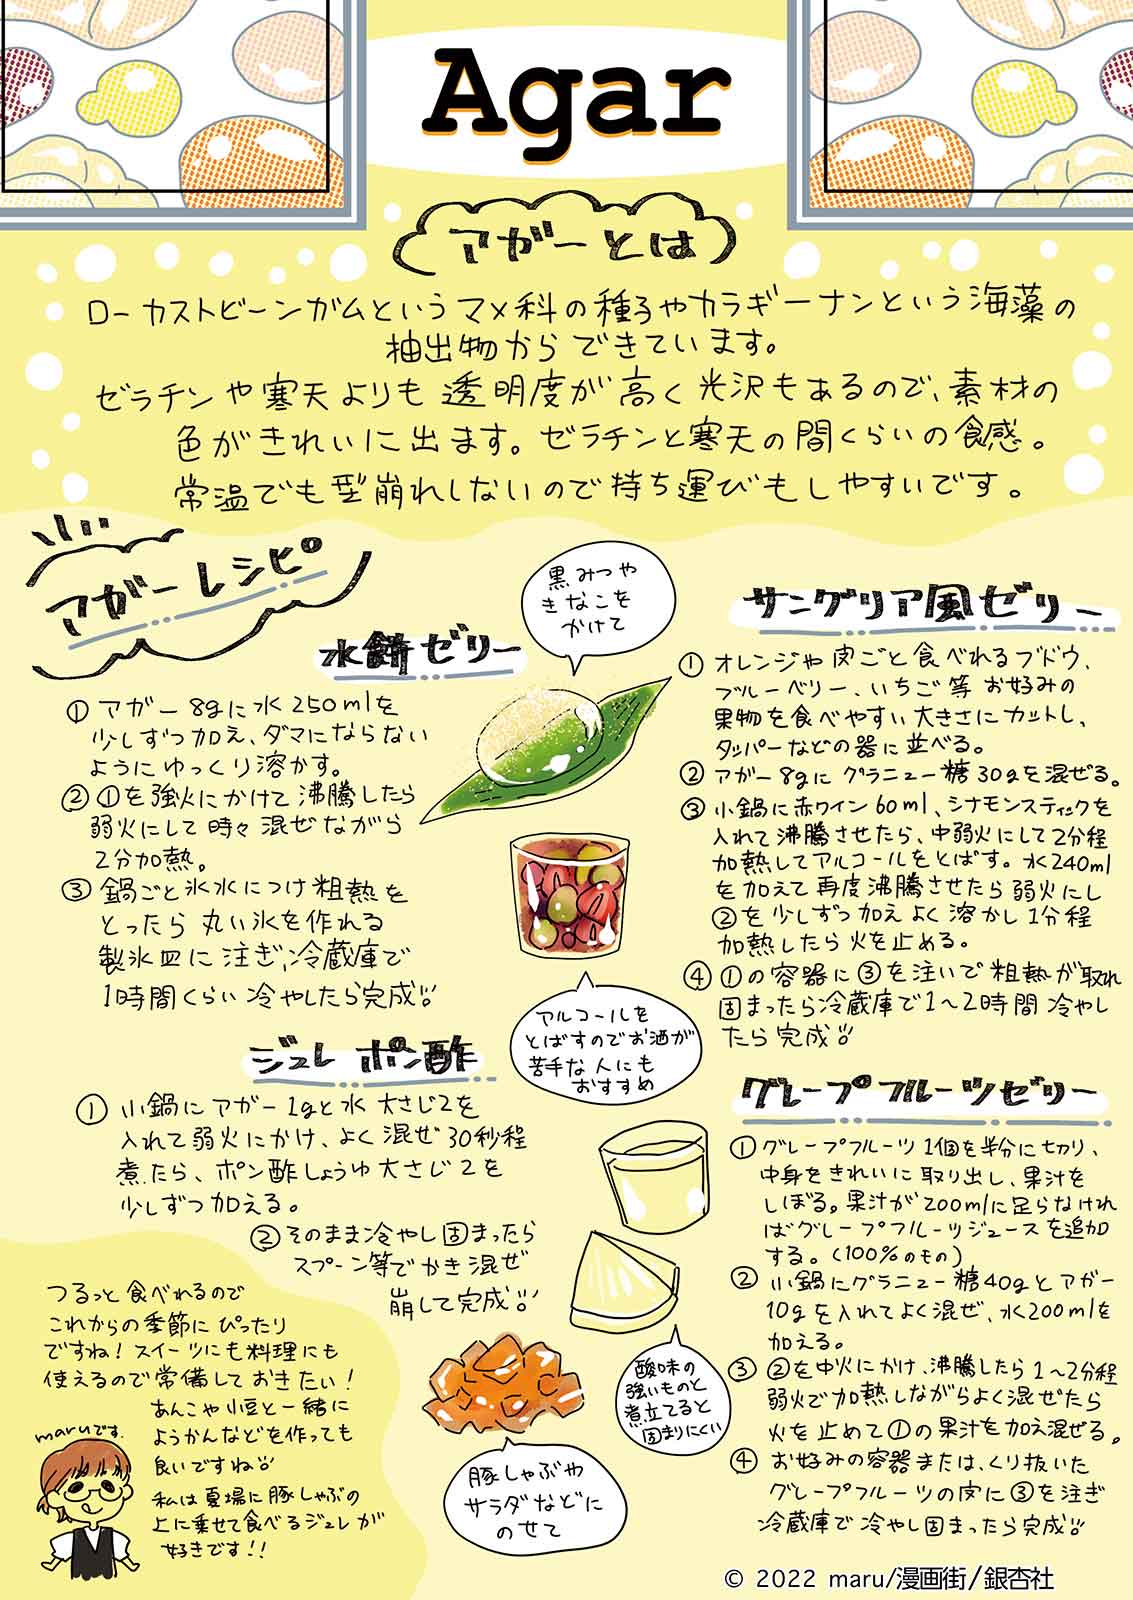 Agar
アガーとは
ローカストビーンガムというマメ科の種子やカラギーナンという海藻の
抽出物からできています。
ゼラチンや寒天よりも透明度が高く光沢もあるので、素材の
色がきれいに出ます。ゼラチンと寒天の間くらいの食感。
常温でも型崩れしないので持ち運びもしやすいです。
アガーレシピ
水餅ゼリー
① アガー8gに水250mlを
少しずつ加え、ダマにならない
ようにゆっくり溶かす。
② ①を強火にかけて沸騰したら
弱火にして時々混ぜながら
2分加熱。
③ 鍋ごと氷水につけ粗熱を
とったら丸い氷を作れる
製氷皿に注ぎ、冷蔵庫で
1時間くらい冷やしたら完成!!
黒みつや
きなこを
かけて
ジュレポン酢
① 小鍋にアガー1gと水大さじ2を
入れて弱火にかけ、よく混ぜ30秒程
煮たら、ポン酢しょうゆ大さじ2を
少しずつ加える。
② そのまま冷やし固まったら
スプーン等でかき混ぜ
崩して完成!!
豚しゃぶや
サラダなどに
のせて
サングリア風ゼリー
① オレンジや皮ごと食べれるブドウ、
ブルーベリー、いちご等お好みの
果物を食べやすい大きさにカットし、
タッパーなどの器に並べる。
② アガー8gにグラニュー糖30gを混ぜる。
③ 小鍋に赤ワイン60ml、シナモンスティックを
入れて沸騰させたら、中弱火にして2分程
加熱してアルコールをとばす。水240ml
を加えて再度沸騰させたら弱火にし
②を少しずつ加えよく溶かし1分程
加熱したら火を止める。
④ ①の容器に③を注いで粗熱が取れ
固まったら冷蔵庫で1〜2時間冷やし
たら完成!!
アルコールを
とばすのでお酒が
苦手な人にも
おすすめ
グレープフルーツゼリー
① グレープフルーツ1個を半分に切り、
中身をきれいに取り出し、果汁を
しぼる。果汁が200mlに足らなけれ
ばグレープフルーツジュースを追加
する。(100%のもの)
② 小鍋にグラニュー糖40gとアガー
10gを入れてよく混ぜ、水200mlを
加える。
③ ②を中火にかけ、沸騰したら1〜2分程
弱火で加熱しながらよく混ぜたら
火を止めて①の果汁を加え混ぜる。
④ お好みの容器または、くり抜いた
グレープフルーツの皮に③を注ぎ
冷蔵庫で冷やし固まったら完成!!
酸味の
強いものと
煮立てると
固まりにくい
つるっと食べれるので
これからの季節にぴったり
ですね!スイーツにも料理にも
使えるので常備しておきたい!
あんこや小豆と一緒に
ようかんなどを作っても
良いですね!!
私は夏場に豚しゃぶの
上に乗せて食べるジュレが
好きです!!
maruです。
© 2022 maru/漫画街/銀杏社